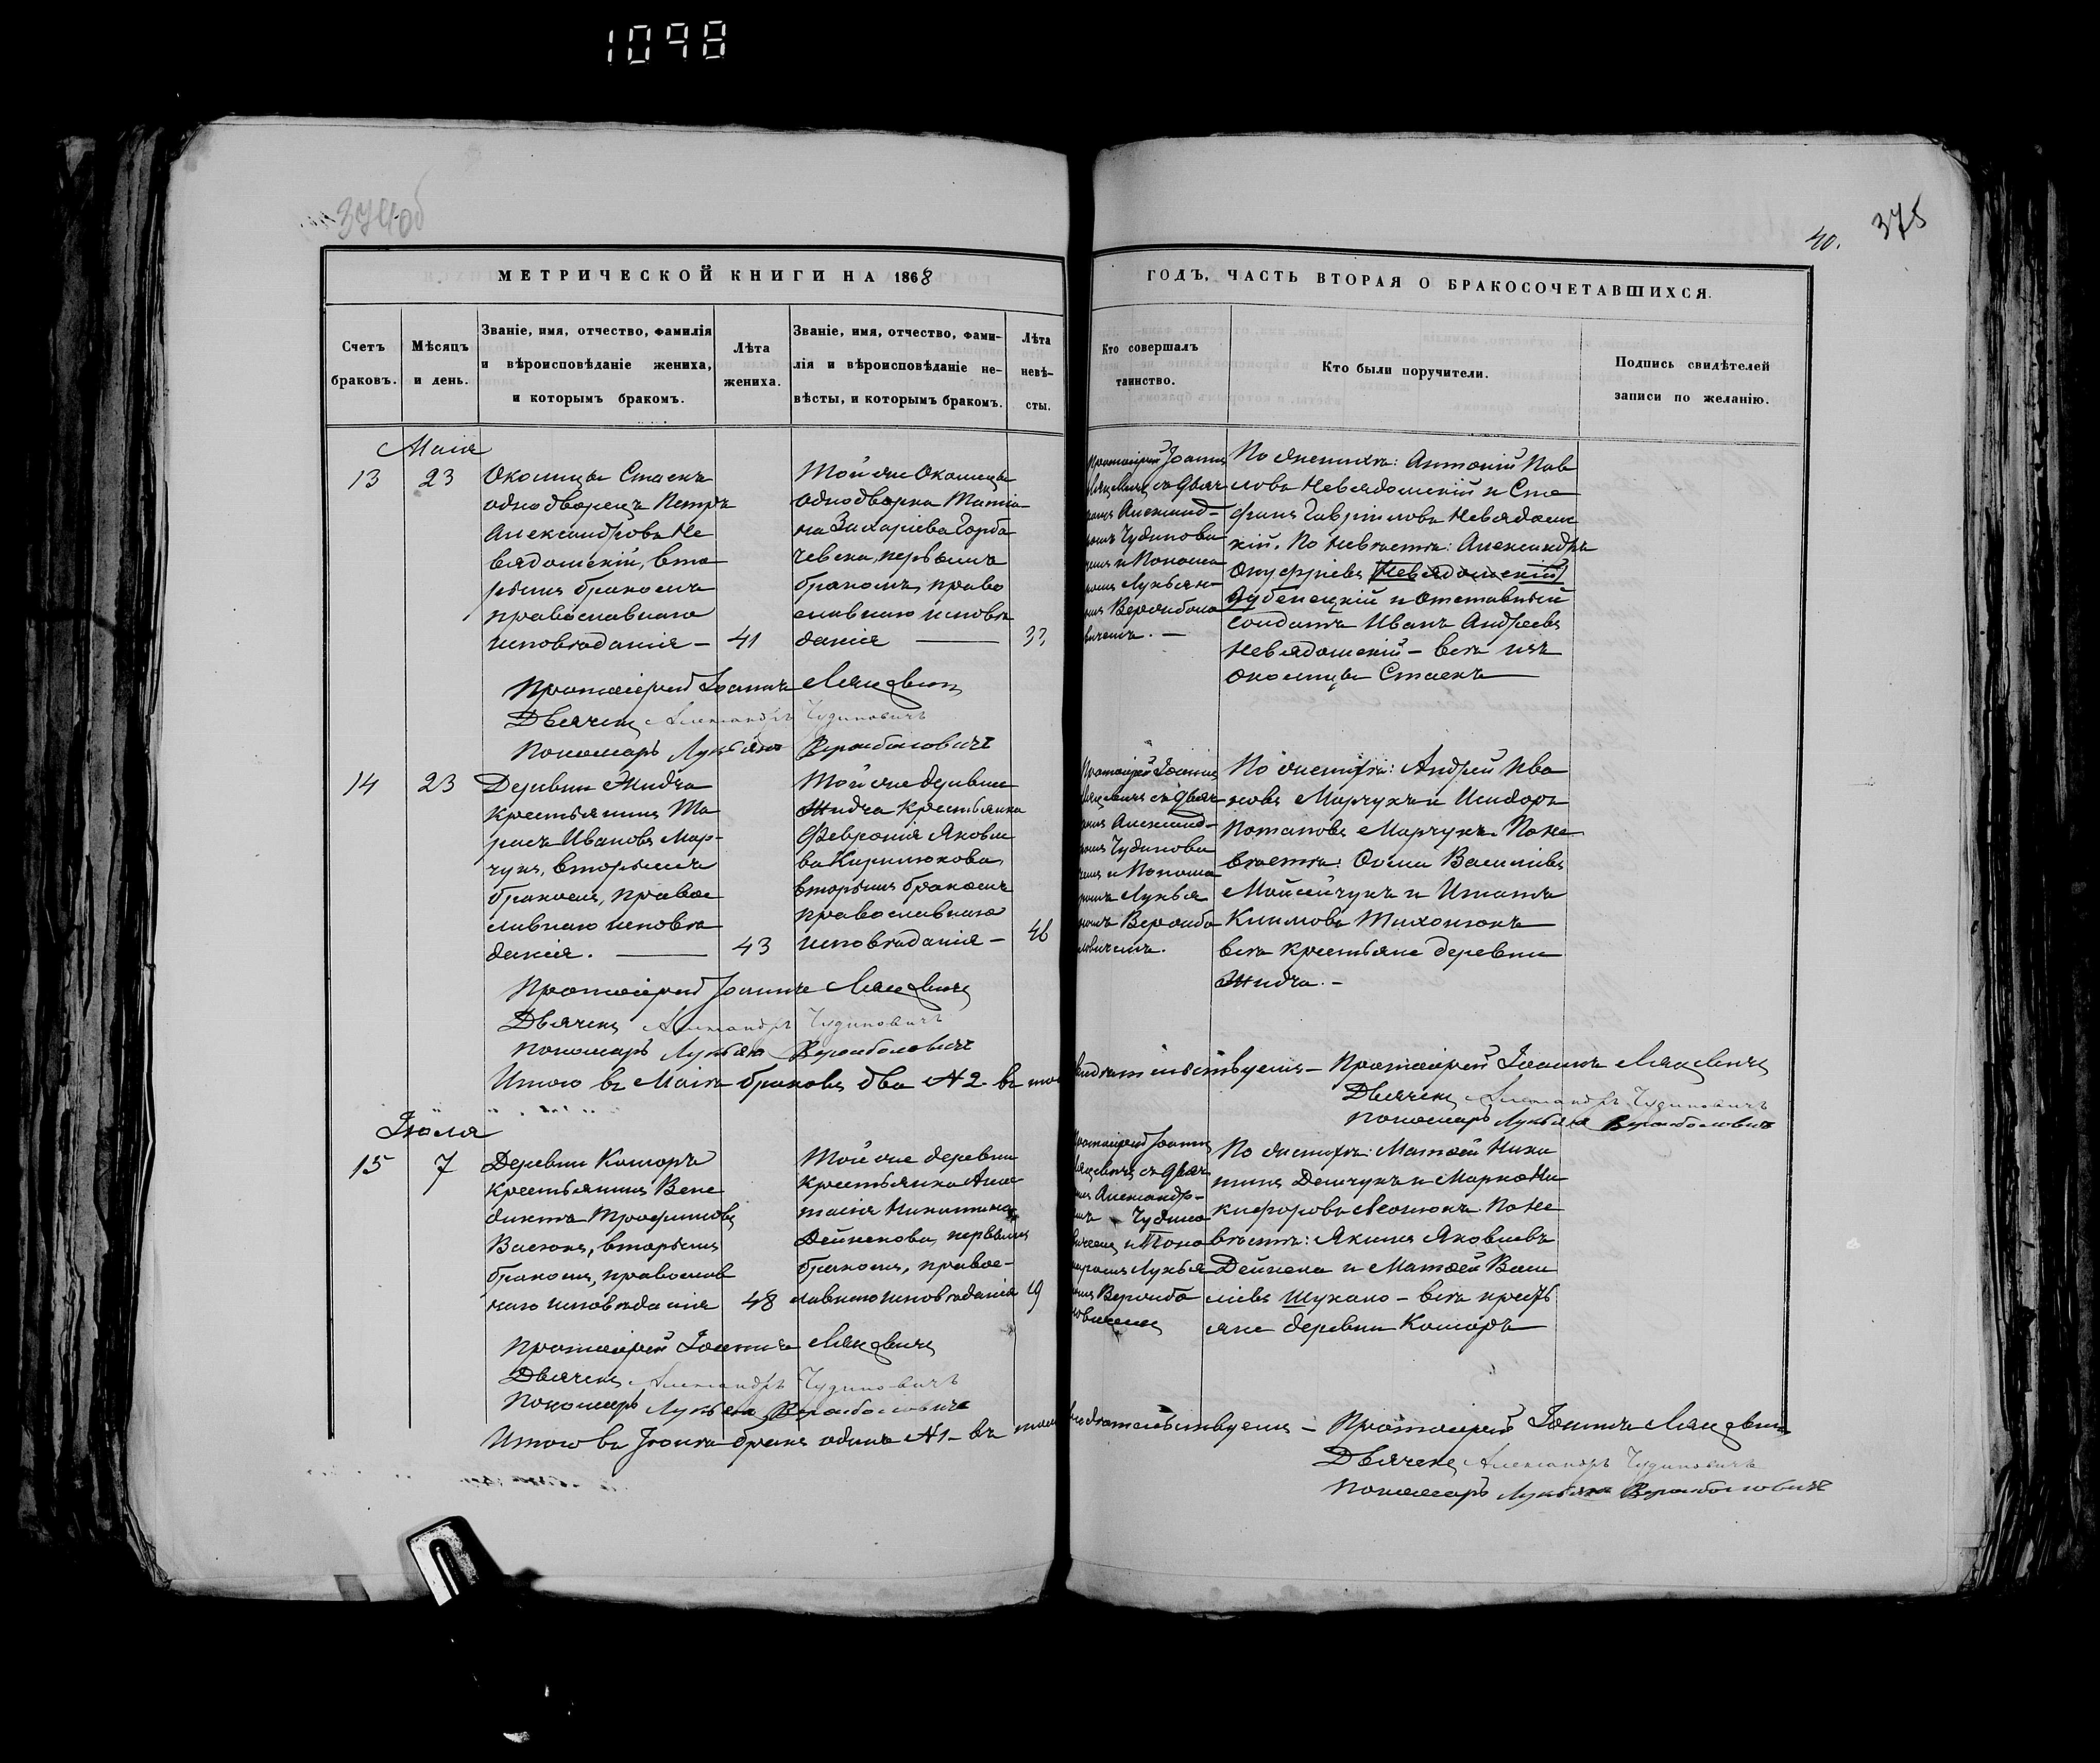 1098
374об
40.
375
МЕТРИЧЕСКОЙ КНИГИ НА 1868
ГОДЪ, ЧАСТЬ ВТОРАЯ О БРАКОСОЧЕТАВШИХСЯ.
Счетъ
браковъ.
Мѣсяцъ
и день.
Званіе, имя, отчество, фамилія
и вѣроисповѣданіе жениха,
и которымъ бракомъ.
Лѣта
жениха.
Званіе, имя, отчество, фами-
лія и вѣроисповѣданіе не-
вѣсты, и которымъ бракомъ.
Лѣта
невѣ-
сты.
Кто совершалъ
таинство.
Кто были поручители.
Подпись свидѣтелей
записи по желанію.
Маія
13
23
Околицы Стаекъ
однодворецъ Петръ
Александровъ Не
вядомскій, вто
рымъ бракомъ
православнаго
исповѣданія –
41
Той же Околицы
однодворка Татіа
на Захаріева Горба
чевска, первымъ
бракомъ, право
славнаго исповѣ
данія
Протоіерей Іоаннъ
съ Дьяч
Александ-
Чудинови
и Понома
Лукьян-
По женихѣ: Антоній Пав
ловъ Невядомскій и Сте
фанъ Гавріиловъ Невядом
скій. По невѣстѣ: Александръ
Онуфріевъ Невядомскій
Дубенецкій и Отставный
солдатъ Иванъ Андреевъ
Невядомскій – всѣ изъ
околицы Стаекъ
Протоіерей Іоаннъ
Дьячекъ Александръ Чудиновичъ
Пономарь Лукьянъ
14
23
Деревни Жидча
крестьянинъ Та
расъ Ивановъ Мар-
чукъ, вторымъ
бракомъ, правос
лавнаго исповѣ
данія.
43
Той же деревни
Жидча крестьянка
Февронія Яковле
ва Кирилюкова,
вторымъ бракомъ
православнаго
исповѣданія –
46
Протоіерей Іоаннъ
съ Дьяч
Александ-
Чудинови
и Понома
Лукья
По женихѣ: Андрей Ива
новъ Марчукъ и Исидоръ
Потаповъ Марчукъ. По не
вѣстѣ: Осипъ Василіевъ
Мойсейчукъ и Игнатъ
Климовъ Тихонюкъ
всѣ крестьяне деревни
Жидча. –
Протоіерей Іоаннъ
Дьячекъ Александръ Чудиновичъ
Пономарь Лукьянъ
Итого въ Маіѣ браковъ два № 2. въ томъ
свидѣтельствуемъ – Протоіерей Іоаннъ
Дьячекъ Александръ Чудиновичъ
Пономарь Лукьянъ
Іюля
15
7
Деревни Кошоръ
крестьянинъ Вене
диктъ Трофимовъ
вторымъ
бракомъ, православ
наго исповѣданія
48
Той же деревни
крестьянка Анас
тасія Никитина
Дейнекова, первымъ
бракомъ, правос-
лавнаго исповѣданія
19
Протоіерей Іоаннъ
съ Дьяч
Александр-
Чудино
вичемъ и Поно
маремъ Лукья
По женихѣ: Матѳей Ники
тинъ Демчукъ и Марко Ни
кифоровъ По не
вѣстѣ: Якимъ Яковлевъ
Дейнека и Матѳей Васи
ліевъ Шукало – всѣ кресть
яне деревни Кошоръ
Протоіерей Іоаннъ
Дьячекъ Александръ Чудиновичъ
Пономарь Лукьянъ
Итого въ Іюлѣ бракъ одинъ № 1 – въ томъ
свидѣтельствуемъ – Протоіерей Іоаннъ
Дьячекъ Александръ Чудиновичъ
Пономарь Лукьянъ